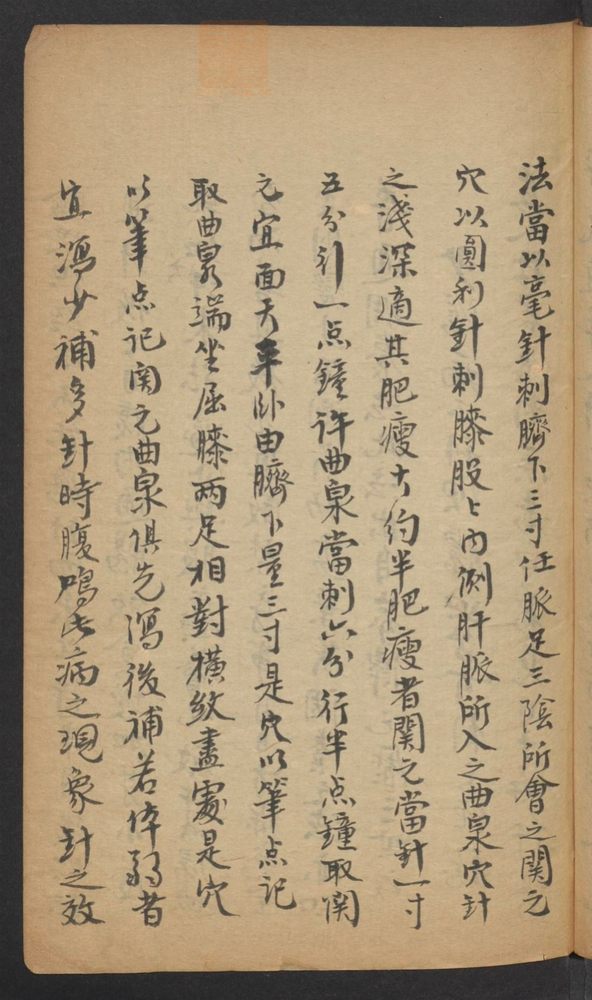 法當以毫針刺臍下三寸任脈足三陰所會之關元
穴以圓利針刺膝股上內側肝脈所入之曲泉穴針
之淺深適其肥瘦大約半肥瘦者關元當針一寸
五分引一点鐘許曲泉當刺六分行半点鐘取関
元宜面天平卧由臍下量三寸是穴以筆点記
取曲泉端坐屈膝两足相對橫紋盡處是穴
以筆点記関元曲泉俱先瀉後補若体弱者
宜瀉少補多針時腹鳴此病之現象針之效